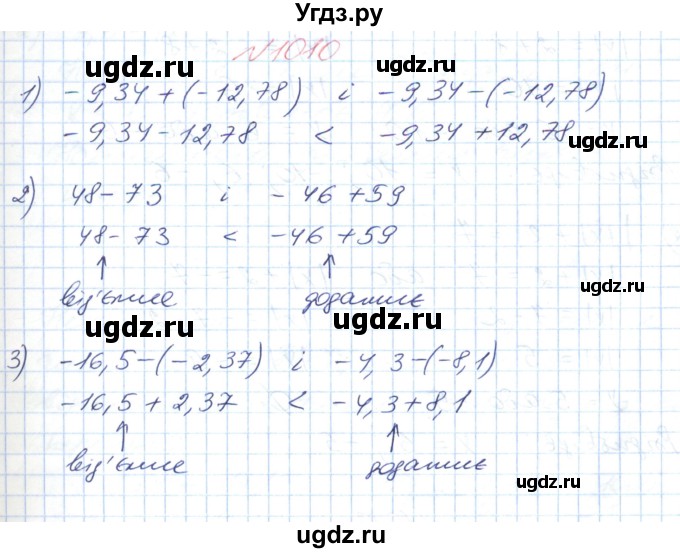 Угдз.ру
№1010
1) -9,34 + (-12,78) і -9,34 - (-12,78)
-9,34 - 12,78 < -9,34 + 12,78
2) 48 - 73 і -46 + 59
48 - 73 < -46 + 59
↑ ↑
від'ємне додатнє
3) -16,5 - (-2,37) і -4,3 - (-8,1)
-16,5 + 2,37 < -4,3 + 8,1
↑ ↑
від'ємне додатнє
ugdz.ru
ugdz.ru
ugdz.ru
ugdz.ru
ugdz.ru
ugdz.ru
ugdz.ru
ugdz.ru
ugdz.ru
ugdz.ru